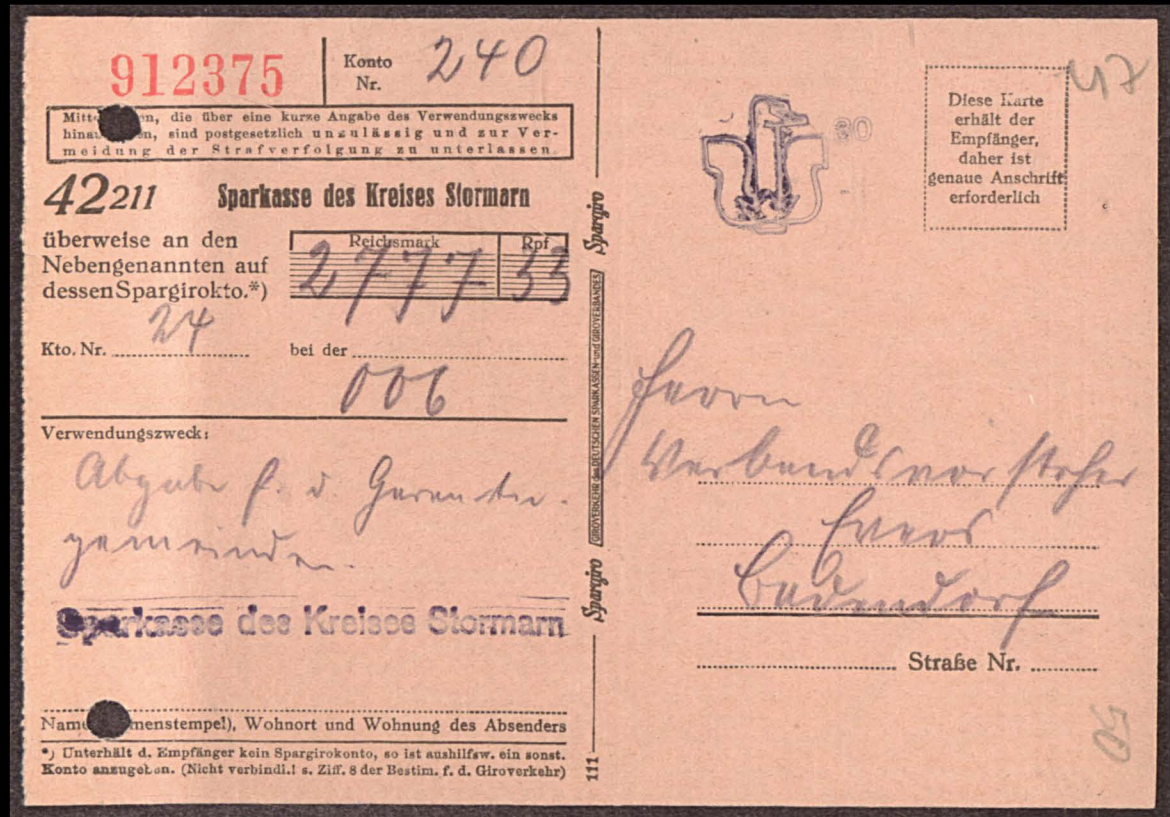 912375
Konto
Nr.
240
Mitt en, die über eine kurze Angabe des Verwendungszwecks
hinau en, sind postgesetzlich unzulässig und zur Ver-
meidung der Strafverfolgung zu unterlassen.
42211
Sparkasse des Kreises Stormarn
überweise an den
Nebengenannten auf
dessen Spargirokto.*)
Reichsmark
Rpf
2777 33
Kto. Nr.
24
bei der
006
Verwendungszweck:
Abgabe f. d. Garantie-
gemeinden.
Sparkasse des Kreises Stormarn
Nam menstempel), Wohnort und Wohnung des Absenders
*) Unterhält d. Empfänger kein Spargirokonto, so ist aushilfsw. ein sonst.
Konto anzugeben. (Nicht verbindl.! s. Ziff. 8 der Bestim. f. d. Giroverkehr)
Spargiro
GIROVERKEHR des DEUTSCHEN SPARKASSEN- und GIROVERBANDES
Spargiro
111
Diese Karte
erhält der
Empfänger,
daher ist
genaue Anschrift
erforderlich
47
Herrn
Verbandsvorsteher
Evers
Badendorf
Straße Nr.
50